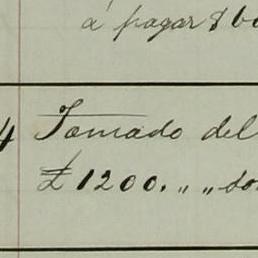 á pagar
4 Tomado del
£1200. „ „